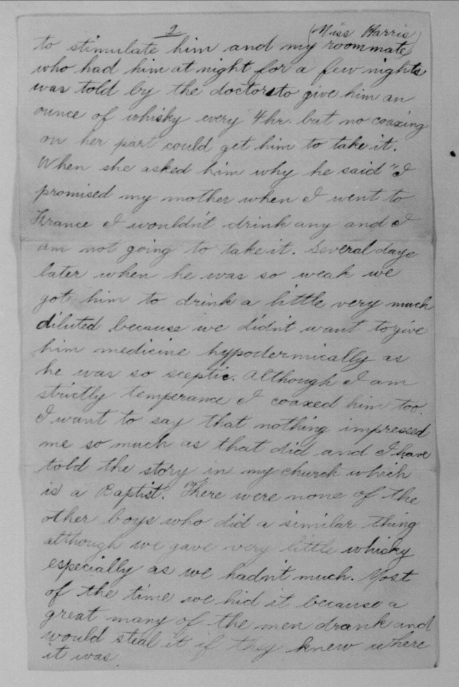 2
(Miss Harris)
to stimulate him and my roommate
who had him at night for a few nights
was told by the doctors to give him an
ounce of whisky every 4 hr. but no coaxing
on her part could get him to take it.
When she asked him why he said "I
promised my mother when I went to
France I wouldn't drink any and I
am not going to take it. Several days
later when he was so weak we
got him to drink a little very much
diluted because we didn't want to give
him medicine hypodermically as
he was so sceptic. Although I am
strictly temperance I coaxed him too.
I want to say that nothing impressed
me so much as that did and I have
told the story in my church which
is a Baptist. There were none of the
other boys who did a similar thing
although we gave very little whisky
especially as we hadn't much. Most
of the time we hid it because a
great many of the men drank and
would steal it if they knew where
it was.